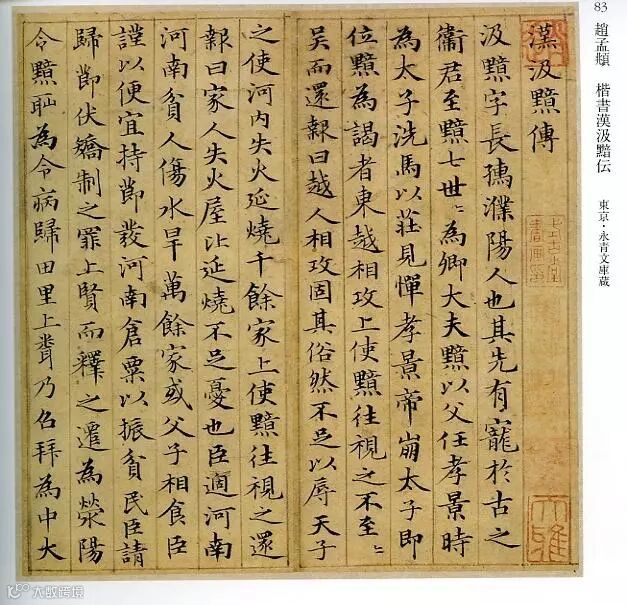 83
趙孟頫 楷書漢汲黯伝 東京・永青文庫蔵
漢汲黯傳
汲黯字長孺濮陽人也其先有寵於古之
衛君至黯七世〻為卿大夫黯以父任孝景時
為太子洗馬以莊見憚孝景帝崩太子即
位黯為謁者東越相攻上使黯往視之不至〻
吳而還報曰越人相攻固其俗然不足以辱天子
之使河内失火延燒千餘家上使黯往視之還
報曰家人失火屋比延燒不足憂也臣適河南
河南貧人傷水旱萬餘家或父子相食臣
謹以便宜持節發河南倉粟以振貧民臣請
歸節伏矯制之罪上賢而釋之遷為滎陽
令黯恥為令病歸田里上乃召拜為中大
大雅
大数跨境